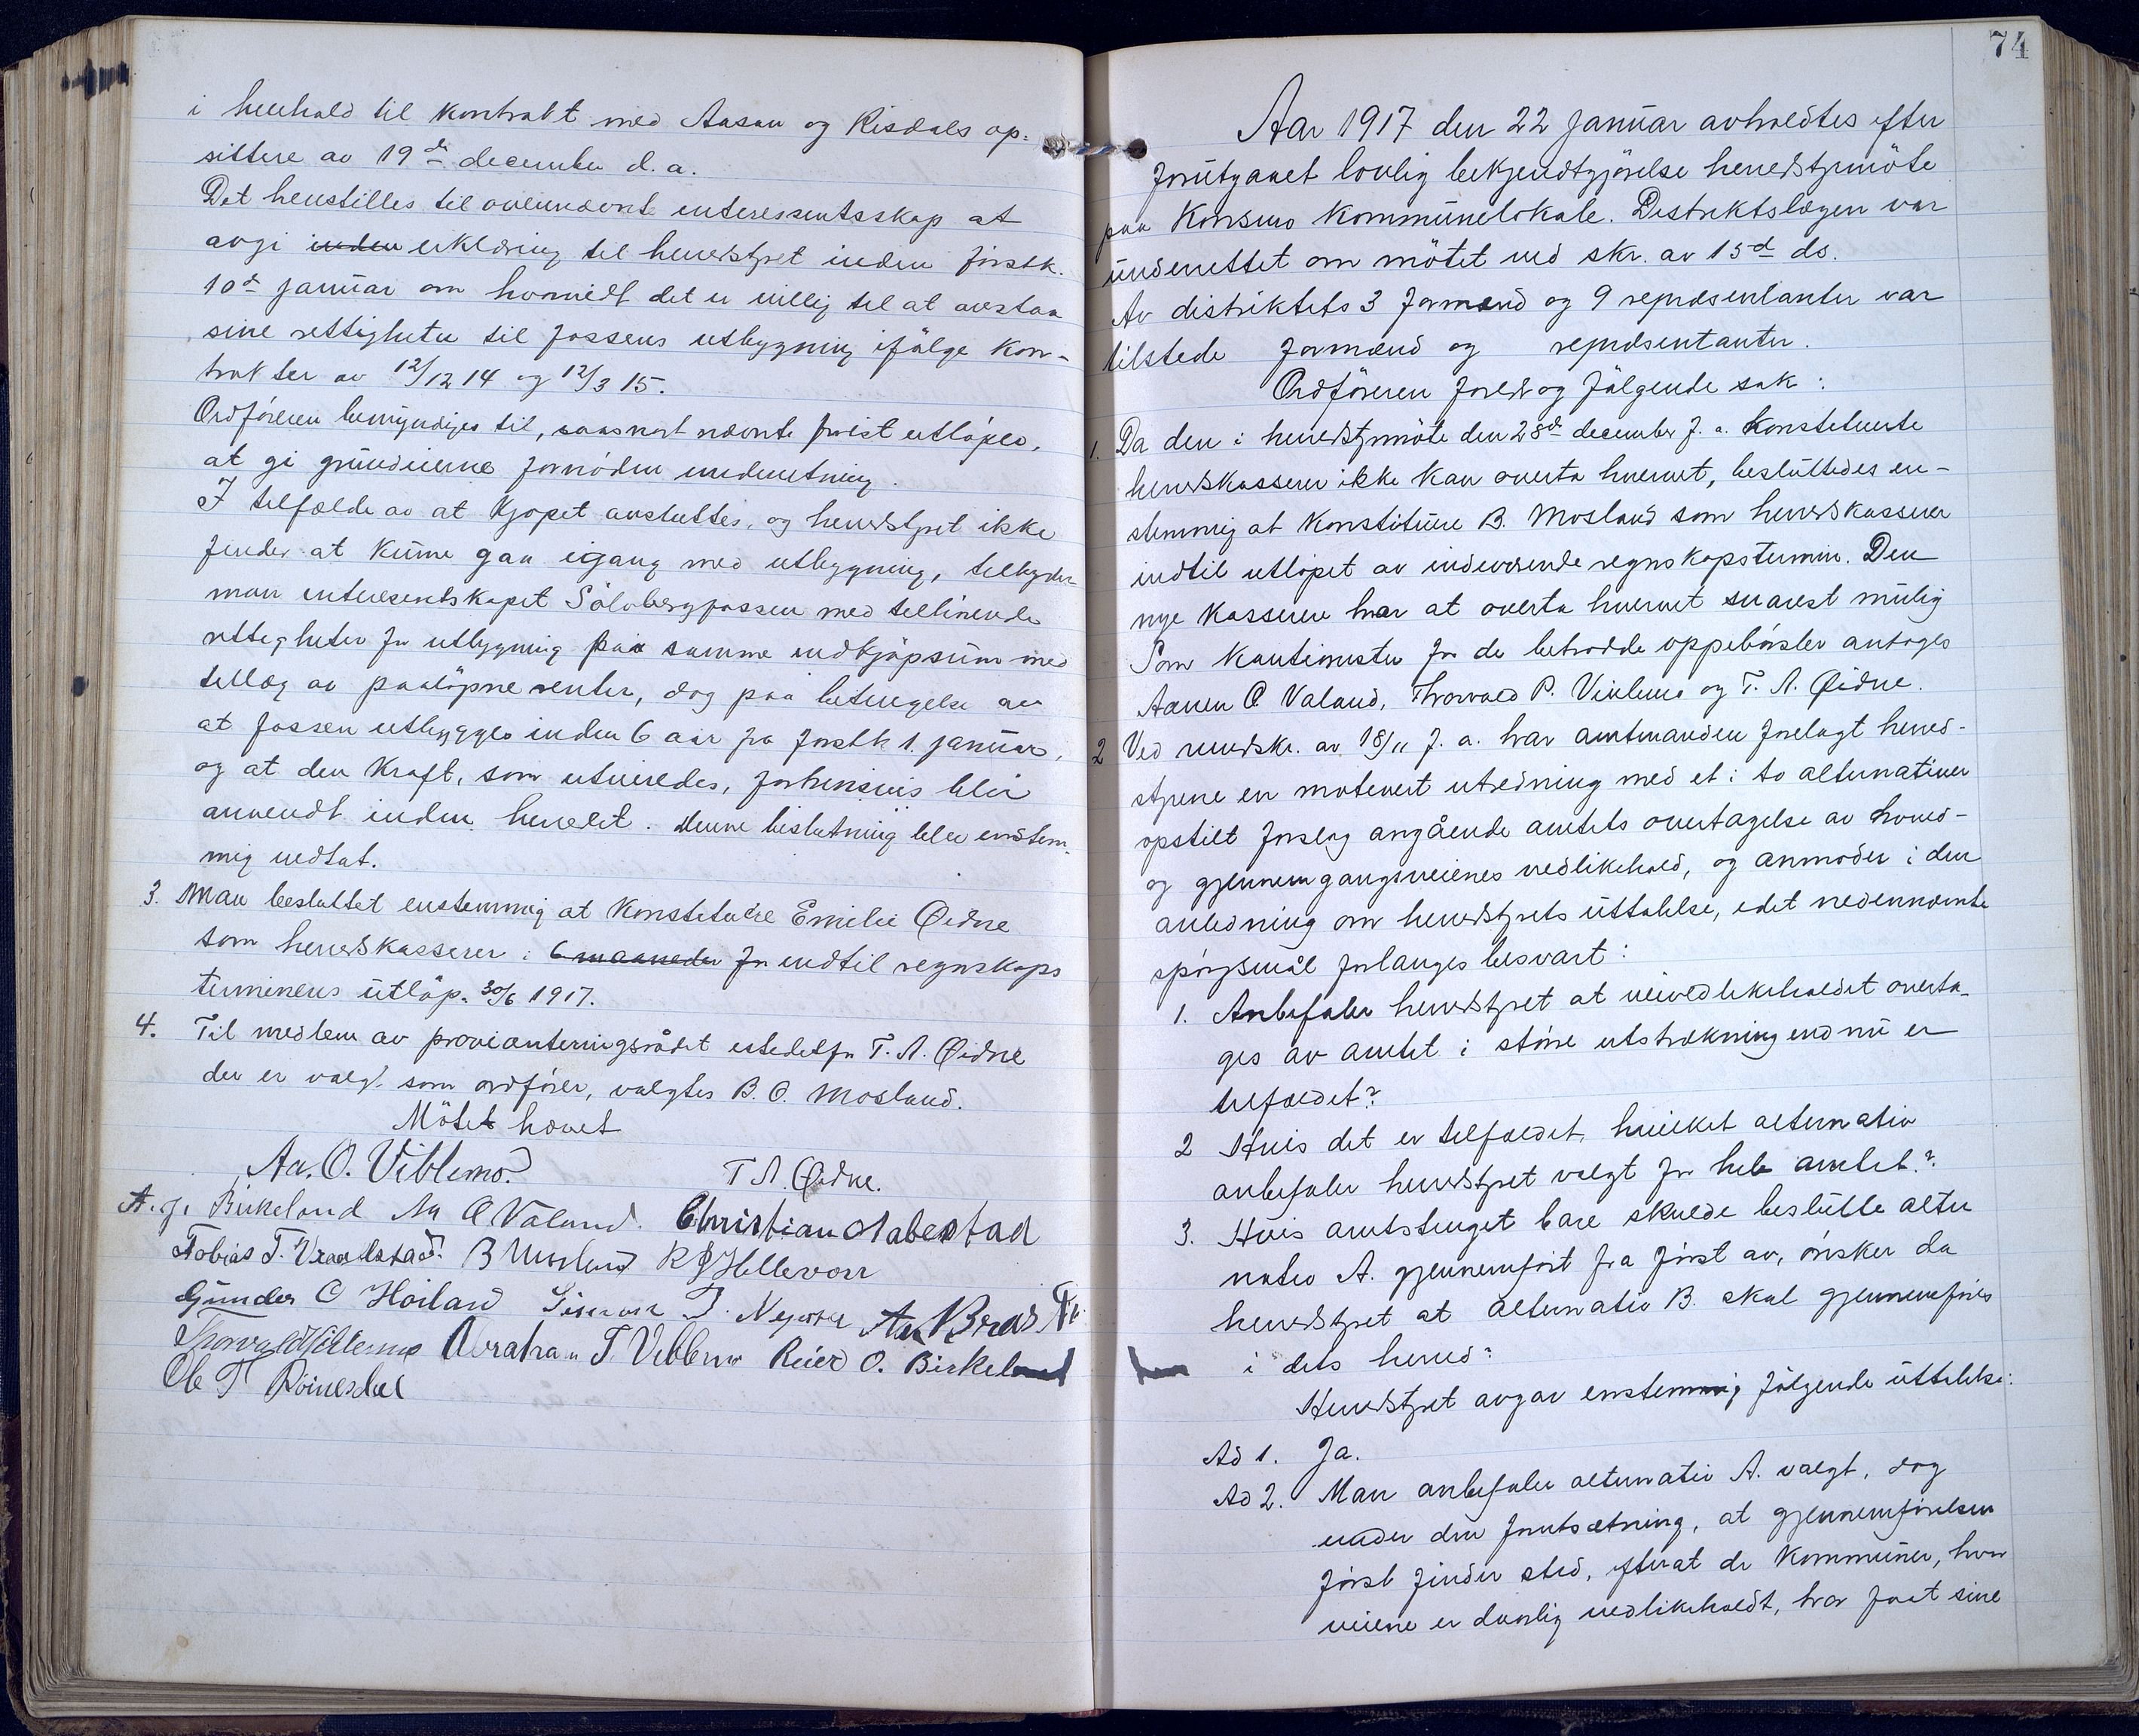 i henhold til kontrakt med Aasan og Risdals op-
sittere av 19de december d.a.
Det henstilles til ovennævnte interessentsskap at
avgi inden erklæring til herredstyret inden førstk.
10de januar om hvorvidt det er villig til at avstaa
sine rettigheter til fossens utbygning ifölge kon-
trakter av 12/12 14 og 12/3 15.
Ordföreren bemyndiges til, saasnart nævnte frist utlöper,
at gi grundeierne fornöden underretning.
I tilfælde av at kjöpet avsluttes, og herredstyret ikke
finder at kunne gaa igang med utbygning, tilbyder
man interesentskapet Sölvbergfossen med tilhörende
rettigheter for utbygning paa samme indkjöpsum med
tillæg av paalöpne renter, dog paa betingelse av
at fossen utbygges inden 6 aar fra förstk 1. januar,
og at den kraft, som utvindes, forhensvis blir
anvendt inden herredet. Denne beslutning blev enstem-
mig vedtat.
3. Man besluttet enstemmig at konstituere Emilie Øidne
som herredskasserer i 6 maaneder for indtil regnskaps
terminens utlöp. 30/6 1917.
4. Til medlem av provianteringsrådet istedetfor T. A. Øidne
der er valgt som ordförer, valgtes B. O. Mosland.
Mötet hævet
Aa. O. Viblemo. T A. Øidne.
A. J. Birkeland Aa O Valand. Christian Aabestad
Tobias T. B Mosland R J Hellevorr
Gunder O Höiland A
Thorvald Viblemo Abraham T. Viblemo Reier O. Birkeland
Ole T Röinesdal
74
Aar 1917 den 22 januar avholdtes efter
forutganet lovlig bekjendtgjörelse herredstyrmöte
paa Konsmo kommunelokale. Distriktslægen var
underrettet om mötet ved skr. av 15de ds.
Av distriktets 3 formænd og 9 repræsentanter var
tilstede formænd og repræsentanter.
Ordföreren foredrog fölgende sak:
1. Da den i herredstyrmöte den 28de december f. a. konstituerte
herredskasserer ikke kan overta hvervet, besluttedes en-
stemmig at konstituere B. Mosland som herredskasserer
indtil utlöpet av indeværende regnskapstermin. Den
nye kasserer har at overta hvervet snarest mulig
Som kautionister for de betrodde oppebörsler antoges
Aanen O Valand, Thorvald P. Viblemo og T. A. Øidne.
2 Ved rundskr. av 18/11 f. a. har amtmanden forelagt herred-
styrene en motivert utredning med et i to alternativer
opstilt forslag angående amtets overtagelse av hoved-
og gjennemgangsveienes vedlikehold, og anmoder i den
anledning om herredstyrets uttalelse, idet nedennævnte
spörgsmål forlanges besvart:
1. Anbefaler herredstyret at veivedlikeholdet overta-
ges av amtet i större utstrækning end nu er
tilfældet?
2 Hvis det er tilfældet, hvilket alternativ
anbefaler herredstyret valgt for hele amtet?
3. Hvis amtstinget bare skulde beslutte alter
nativ A. gjennemfört fra först av, önsker da
herredstyret at alternativ B. skal gjennemföres
i dets herred?
Herredstyret avgav enstemmig fölgende uttalelse:
Ad 1. Ja.
Ad 2. Man anbefaler alternativ A. valgt, dog
under den forutsætning, at gjennemförelsen
först finder sted, efterat de kommuner, hvor
veiene er daarlig vedlikeholdt, har faat sine